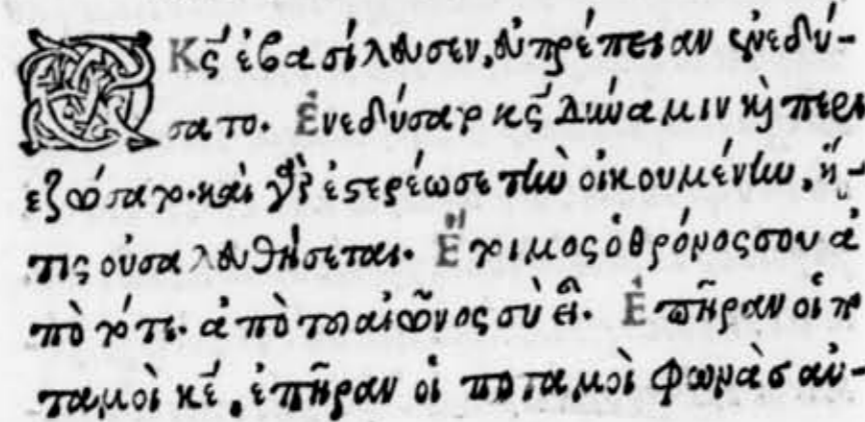 Ὁ Κς ἐβασίλευσεν, εὐπρέπειαν ἐνεδύ-
σατο. Ἐνεδύσατο κς δύναμιν κὶ περι
εζώσατο. καὶ γὰρ ἐστερέωσε τὴν οἰκουμένην, ἥ-
τις οὐ σαλευθήσεται. Ἕτοιμος ὁ θρόνος σου ἀ
πὸ τότε. ἀπὸ τοῦ αἰῶνος σὺ εἶ. Ἐπῆραν οἱ πο
ταμοὶ κε, ἐπῆραν οἱ ποταμοὶ φωνὰς αὐ-